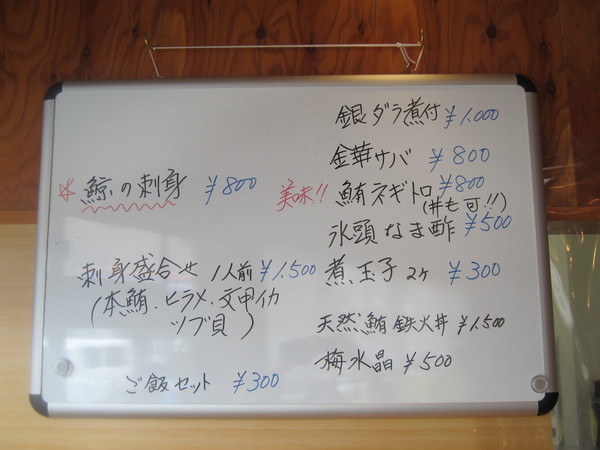 銀ダラ煮付 ¥1,000
金華サバ ¥800
美味!! 鮪ネギトロ ¥800
(丼も可!!)
氷頭なま酢 ¥500
煮玉子 2ヶ ¥300
天然鮪 鉄火丼 ¥1,500
梅水晶 ¥500
* 鯨の刺身 ¥800
刺身盛合せ 1人前 ¥1,500
(本鮪、ヒラメ、文甲イカ
ツブ貝)
ご飯セット ¥300